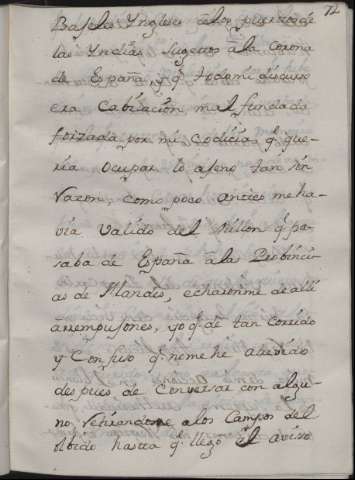 72
Bajeles Yngleses a los puertos de
las Yndias sugetos a la Corona
de España, y q.e todo mi discurso
era Cabilacion mal fundada
forzada por mi Codicia q.e que-
ria Ocupar lo ageno tan sin
razon, como poco antes me ha-
via Valido del Millon q.e pa-
saba de España a las Probinci-
as de Flandes, echaronme de alli
a rempujones, yo q.de de tan Corrido
y Confuso q.e no me he atrevido
despues de Conversar con algu-
no, retirandome a los Campos del
olbido hasta q.e llego el aviso